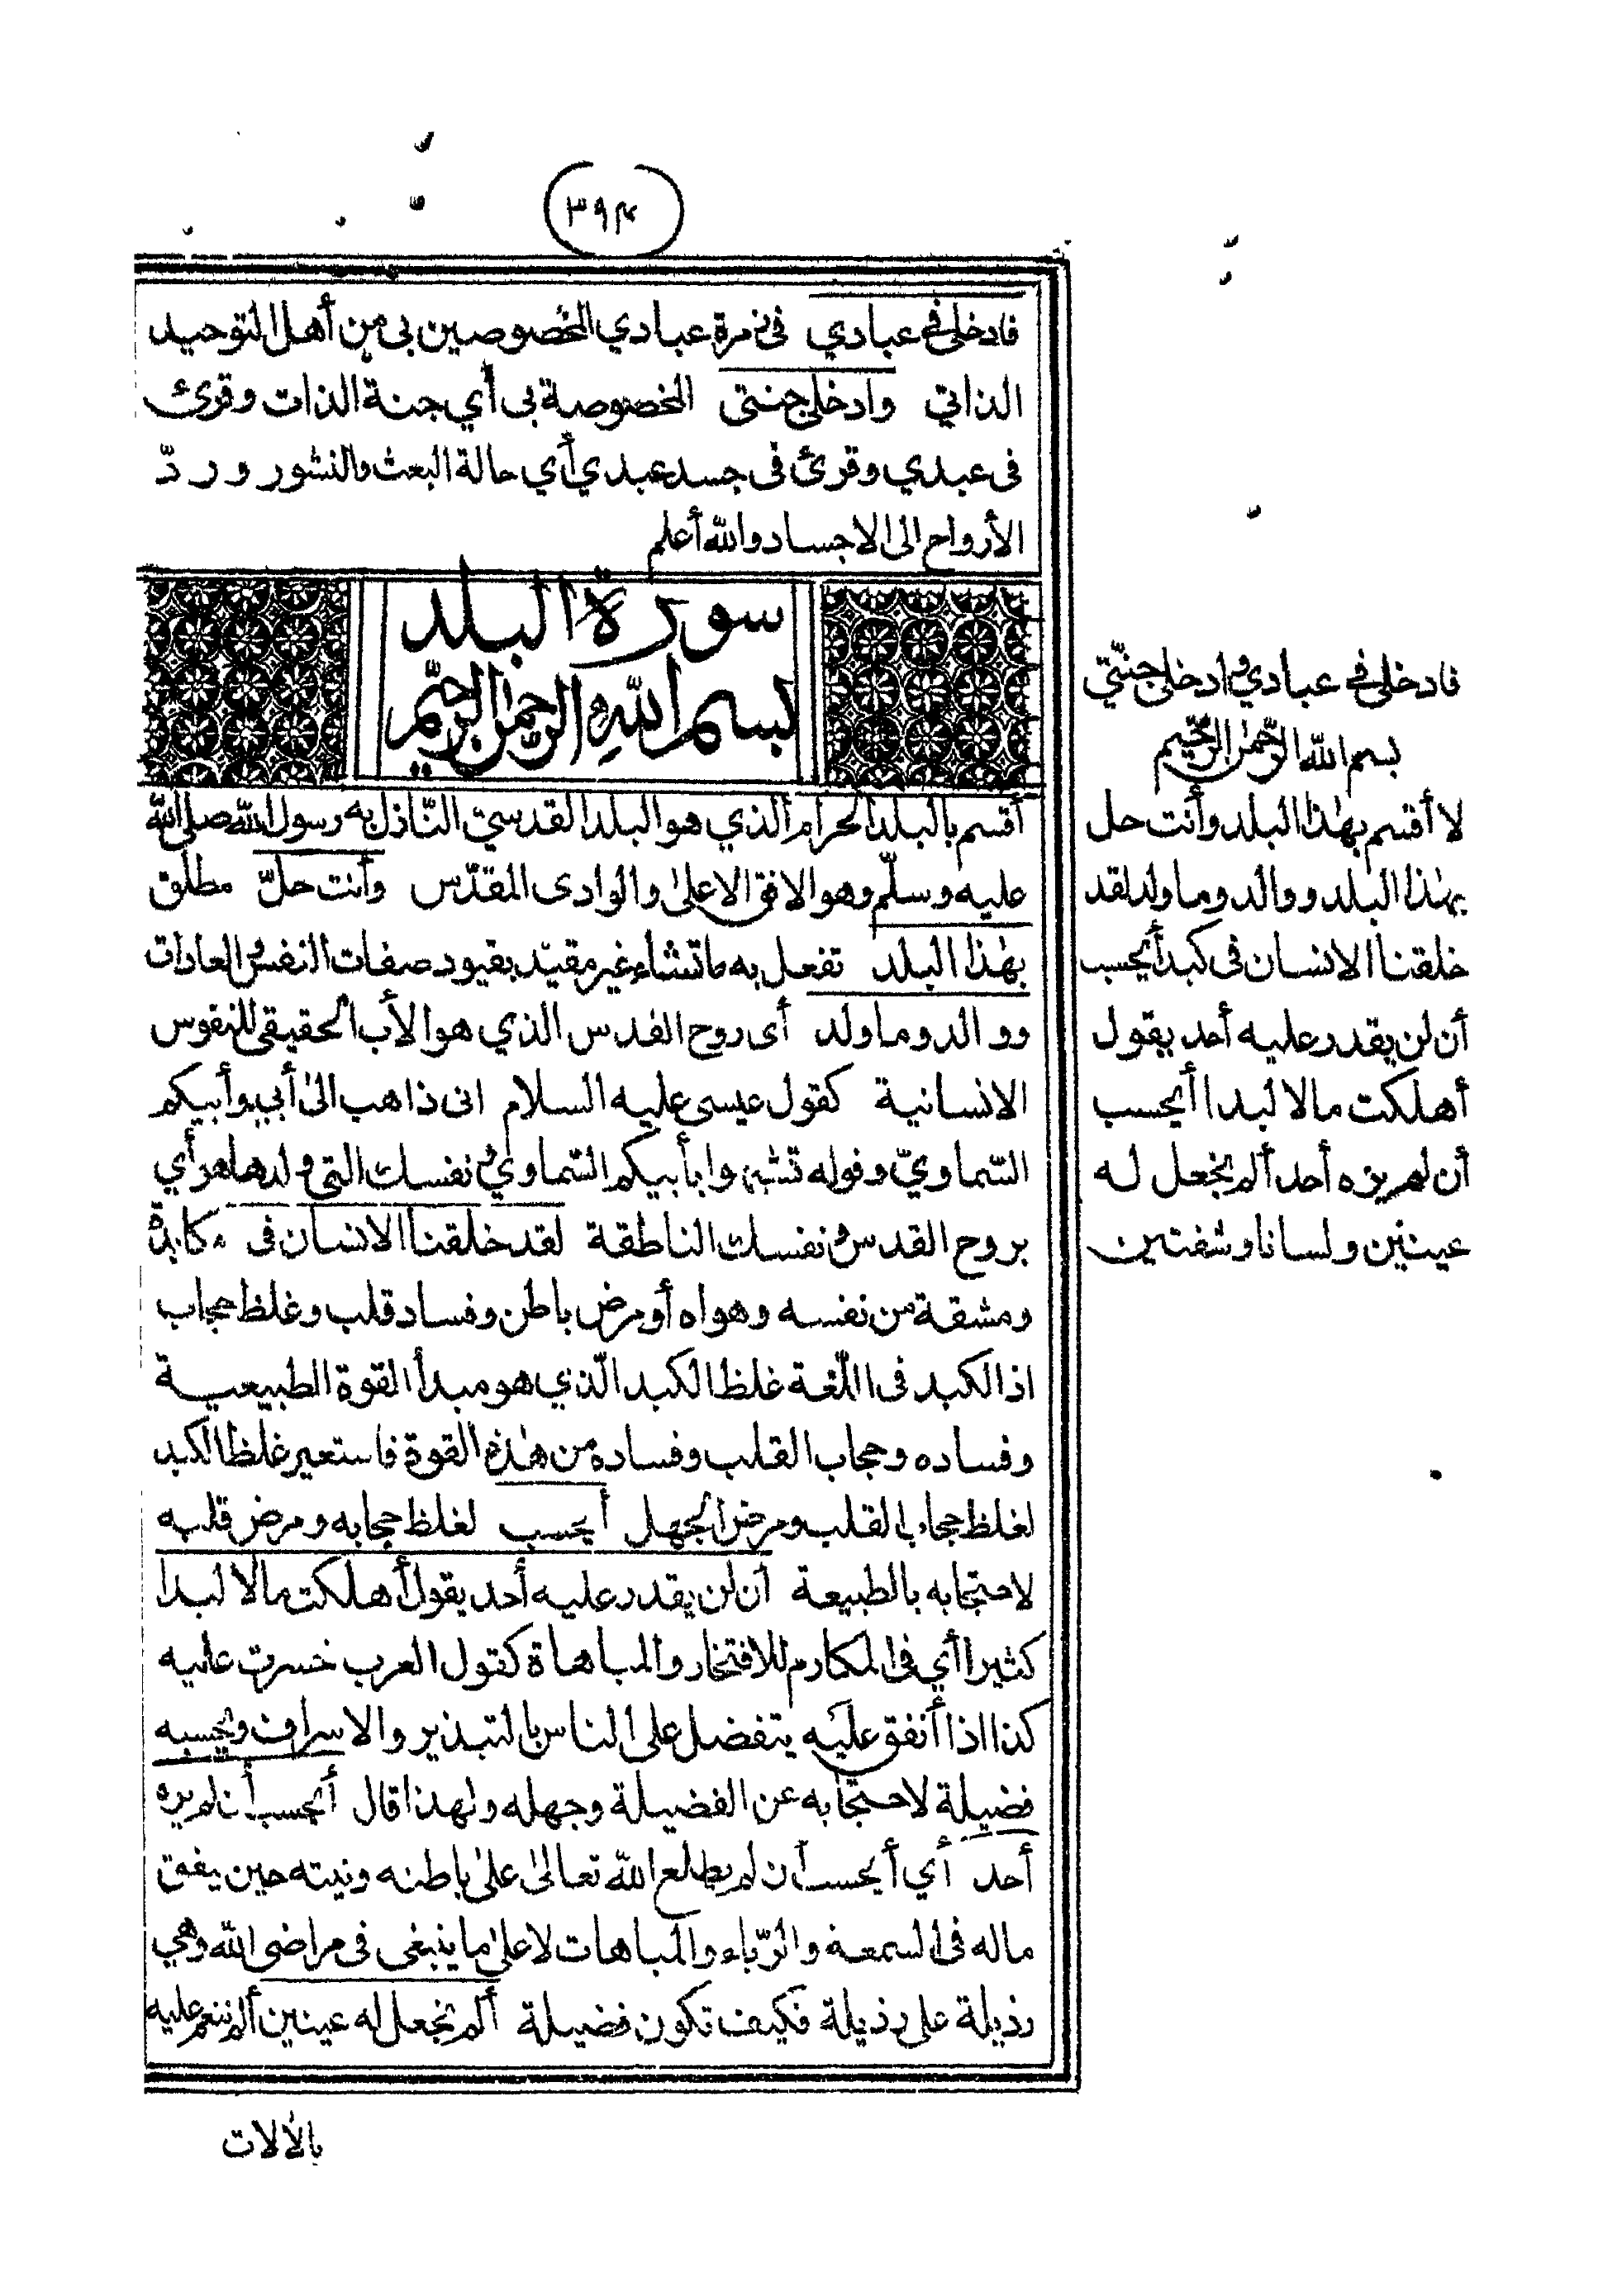 ٣٩٤
فادخلى فى عبادي فى زمرة عبادي المخصوصين بى من أهل التوحيد
الذاتي وادخلى جنتى المخصوصة بى أي جنة الذات وقرئ
فى عبدي وقرئ فى جسد عبدي أي حالة البعث والنشور ورد
الأرواح الى الاجساد والله أعلم
سورة البلد
بسم الله الرحمن الرحيم
أقسم بالبلد الحرام الذي هو البلد القدسي النازل به رسول الله صلى الله
عليه وسلّم وهو الافق الاعلىٰ والوادى المقدّس وأنت حلّ مطلق
بهٰذا البلد تفعل به ما تشاء غير مقيّد بقيود صفات النفس والعادات
ووالد وما ولد أى روح القدس الذي هو الأب الحقيقى للنفوس
الانسانية كقول عيسى عليه السلام انى ذاهب الىٰ أبي وأبيكم
السّماويّ وقوله تشبهوا بأبيكم السّماويّ ونفسك التى ولدها هو أي
بروح القدس ونفسك الناطقة لقد خلقنا الانسان فى مكابدة
ومشقة من نفسه وهواه أو مرض باطن وفساد قلب وغلظ حجاب
اذ الكبد فى اللّغة غلظ الكبد الّذي هو مبدأ القوة الطبيعية
وفساده وحجاب القلب وفساده من هٰذه القوة فاستعير غلظ الكبد
لغلظ حجاب القلب ومرض الجهل أيحسب لغلظ حجابه ومرض قلبه
لاحتجابه بالطبيعة أن لن يقدر عليه أحد يقول أهلكت مالا لبدا
كثيرا أي فى المكارم للافتخار والمباهاة كقول العرب خسرت عليه
كذا اذا أنفق عليه يتفضل على الناس بالتبذير والاسراف ويحسبه
فضيلة لاحتجابه عن الفضيلة وجهله ولهذا قال أيحسب أن لم يره
أحد أي أيحسب أن لم يطلع الله تعالىٰ علىٰ باطنه ونيته حين ينفق
ماله فى السمعة والرّياء والمباهات لا علىٰ ما ينبغى فى مراضى الله وهي
رذيلة على رذيلة فكيف تكون فضيلة ألم نجعل له عينين ألم ننعم عليه
بالآلات
فادخلى فى عبادي وادخلى جنّتي
بسم الله الرّحمٰن الرّحيم
لا أقسم بهٰذا البلد وأنت حل
بهٰذا البلد ووالد وما ولد لقد
خلقنا الانسان فى كبد أيحسب
أن لن يقدر عليه أحد يقول
أهلكت مالا لبدا أيحسب
أن لم يره أحد ألم نجعل له
عينين ولسانا وشفتين